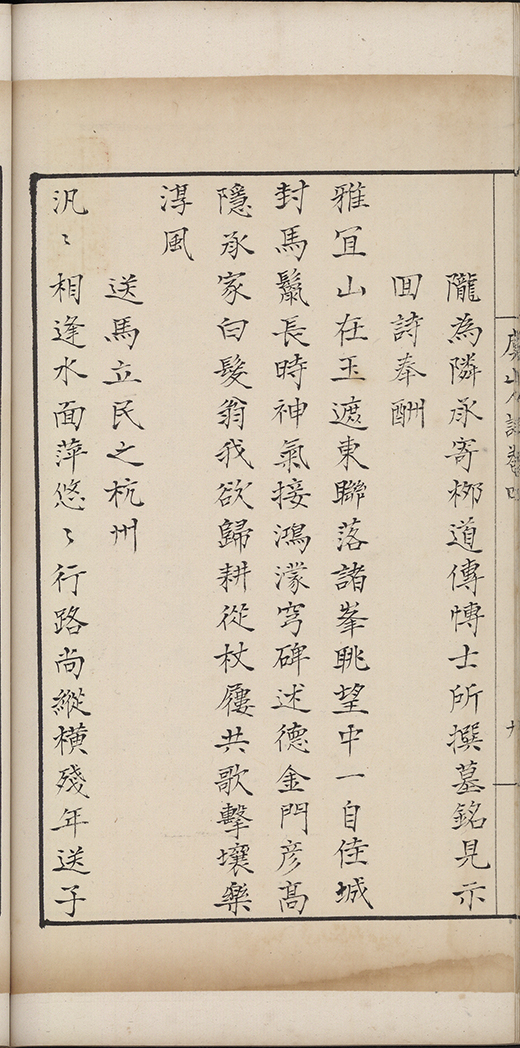 虞山人詩卷四
九
隴為隣承寄栁道傳愽士所撰墓銘見示
囬詩奉酬
雅冝山在玉遮東聯落諸峯眺望中一自佳城
封馬鬛長時神氣接鴻濛穹碑述德金門彦高
隱承家白髮翁我欲歸耕從杖屨共歌擊壤樂
淳風
送馬立民之杭州
汎〻相逢水面萍悠〻行路尚縱橫殘年送子